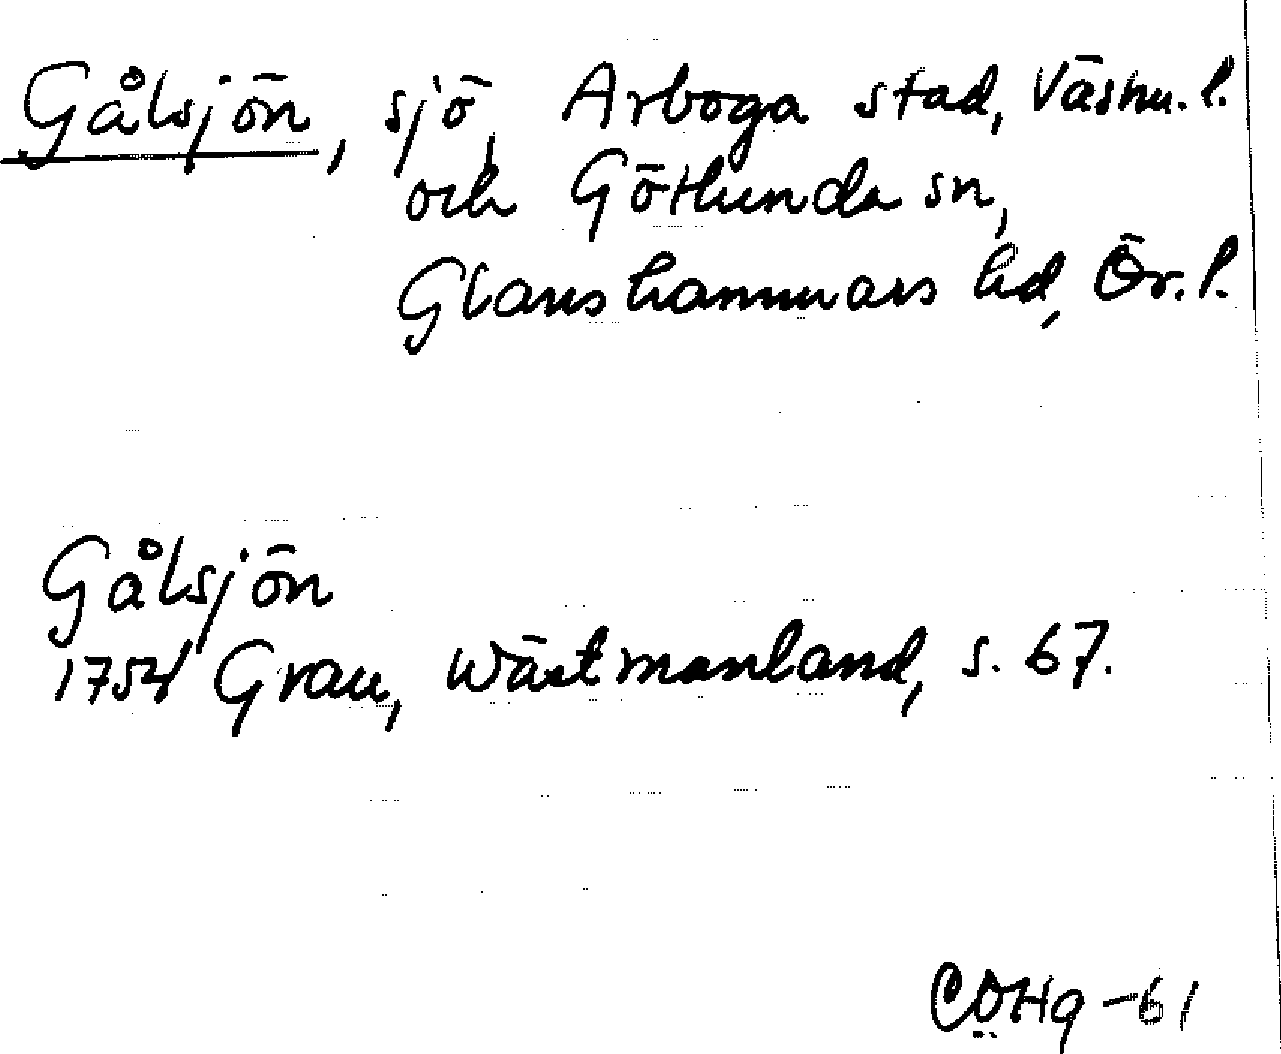 Gålsjön, sjö, Arboga stad, Västm. l.
och Götlunda sn,
Glanshammars hd, Ör. l.
Gålsjön
1754 Grau, Wästmanland, s. 67.
CÖHg -61